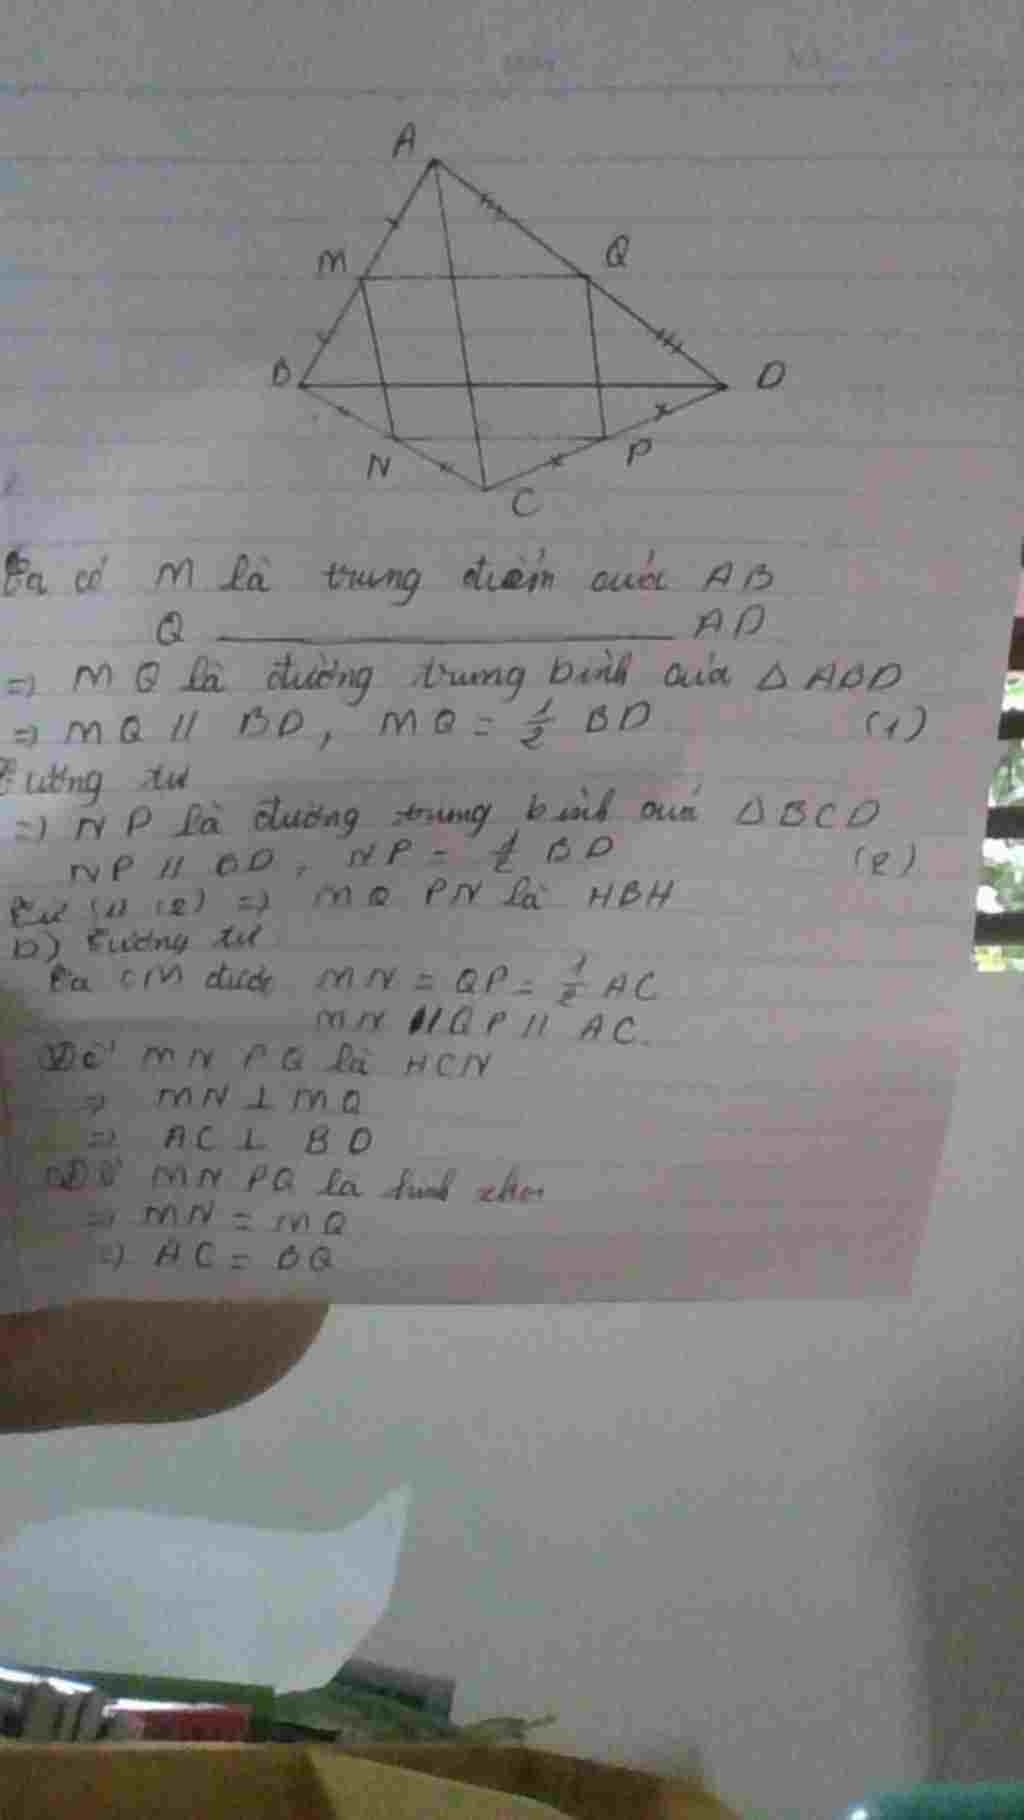 A
M
Q
B
D
N
P
C
Ta có M là trung điểm của AB
Q ________ AD
=> MQ là đường trung bình của Δ ABD
=> MQ // BD, MQ = 1/2 BD (1)
Tương tự
=> NP là đường trung bình của Δ BCD
NP // BD, NP = 1/2 BD (2)
Từ (1) (2) => MQ PN là HBH
b) Tương tự
Ta CM được MN = QP = 1/2 AC
MN // QP // AC.
Để MN PQ là HCN
=> MN ⊥ MQ
=> AC ⊥ BD
Để MN PQ là hình thoi
=> MN = MQ
=> AC = BQ